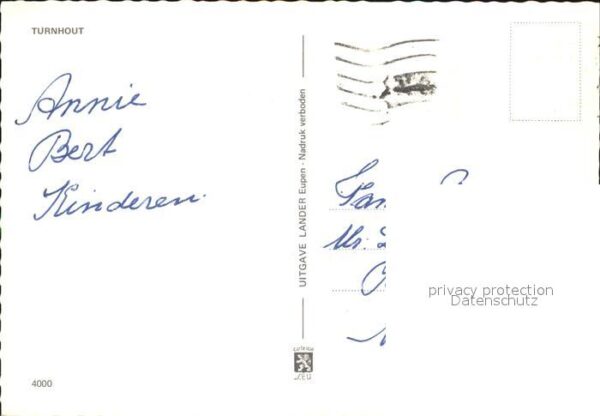 TURNHOUT
Annie
Bert
Kinderen.
4000
UITGAVE LANDER Eupen - Nadruk verboden
privacy protection
Datenschutz